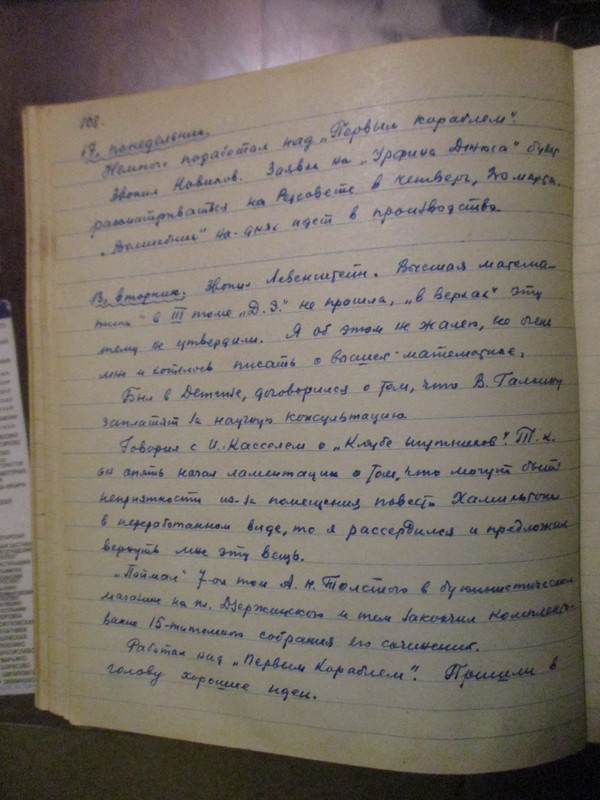 108.
17, понедельник.
Немного поработал над „Первым кораблем".
Звонил Новиков. Заявка на „Урфина Джюса" будет
рассматриваться на Редсовете в четверг, 20 марта.
„Волшебник" на-днях идет в производство.
18, вторник. Звонил Левенштейн. Высшая матема-
тика" в III томе „Д.Э." не прошла, „в верхах" эту
тему не утвердили. Я об этом не жалею, не очень
мне и хотелось писать о высшей математике.
Был в Детгизе, договорился о том, что В. Галкину
заплатят за научную консультацию.
Говорил с И. Касселем о „Клубе путников". Т.к.
он опять начал ламентации о том, что могут быть
неприятности из-за помещения повести Хамильтона
в переработанном виде, то я рассердился и предложил
вернуть мне эту вещь.
„Поймал" 7-ой том А.Н. Толстого в букинистическом
магазине на пл. Дзержинского и тем закончил комплекто-
вание 15-титомного собрания его сочинений.
Работал над „Первым Кораблем". Пришли в
голову хорошие идеи.